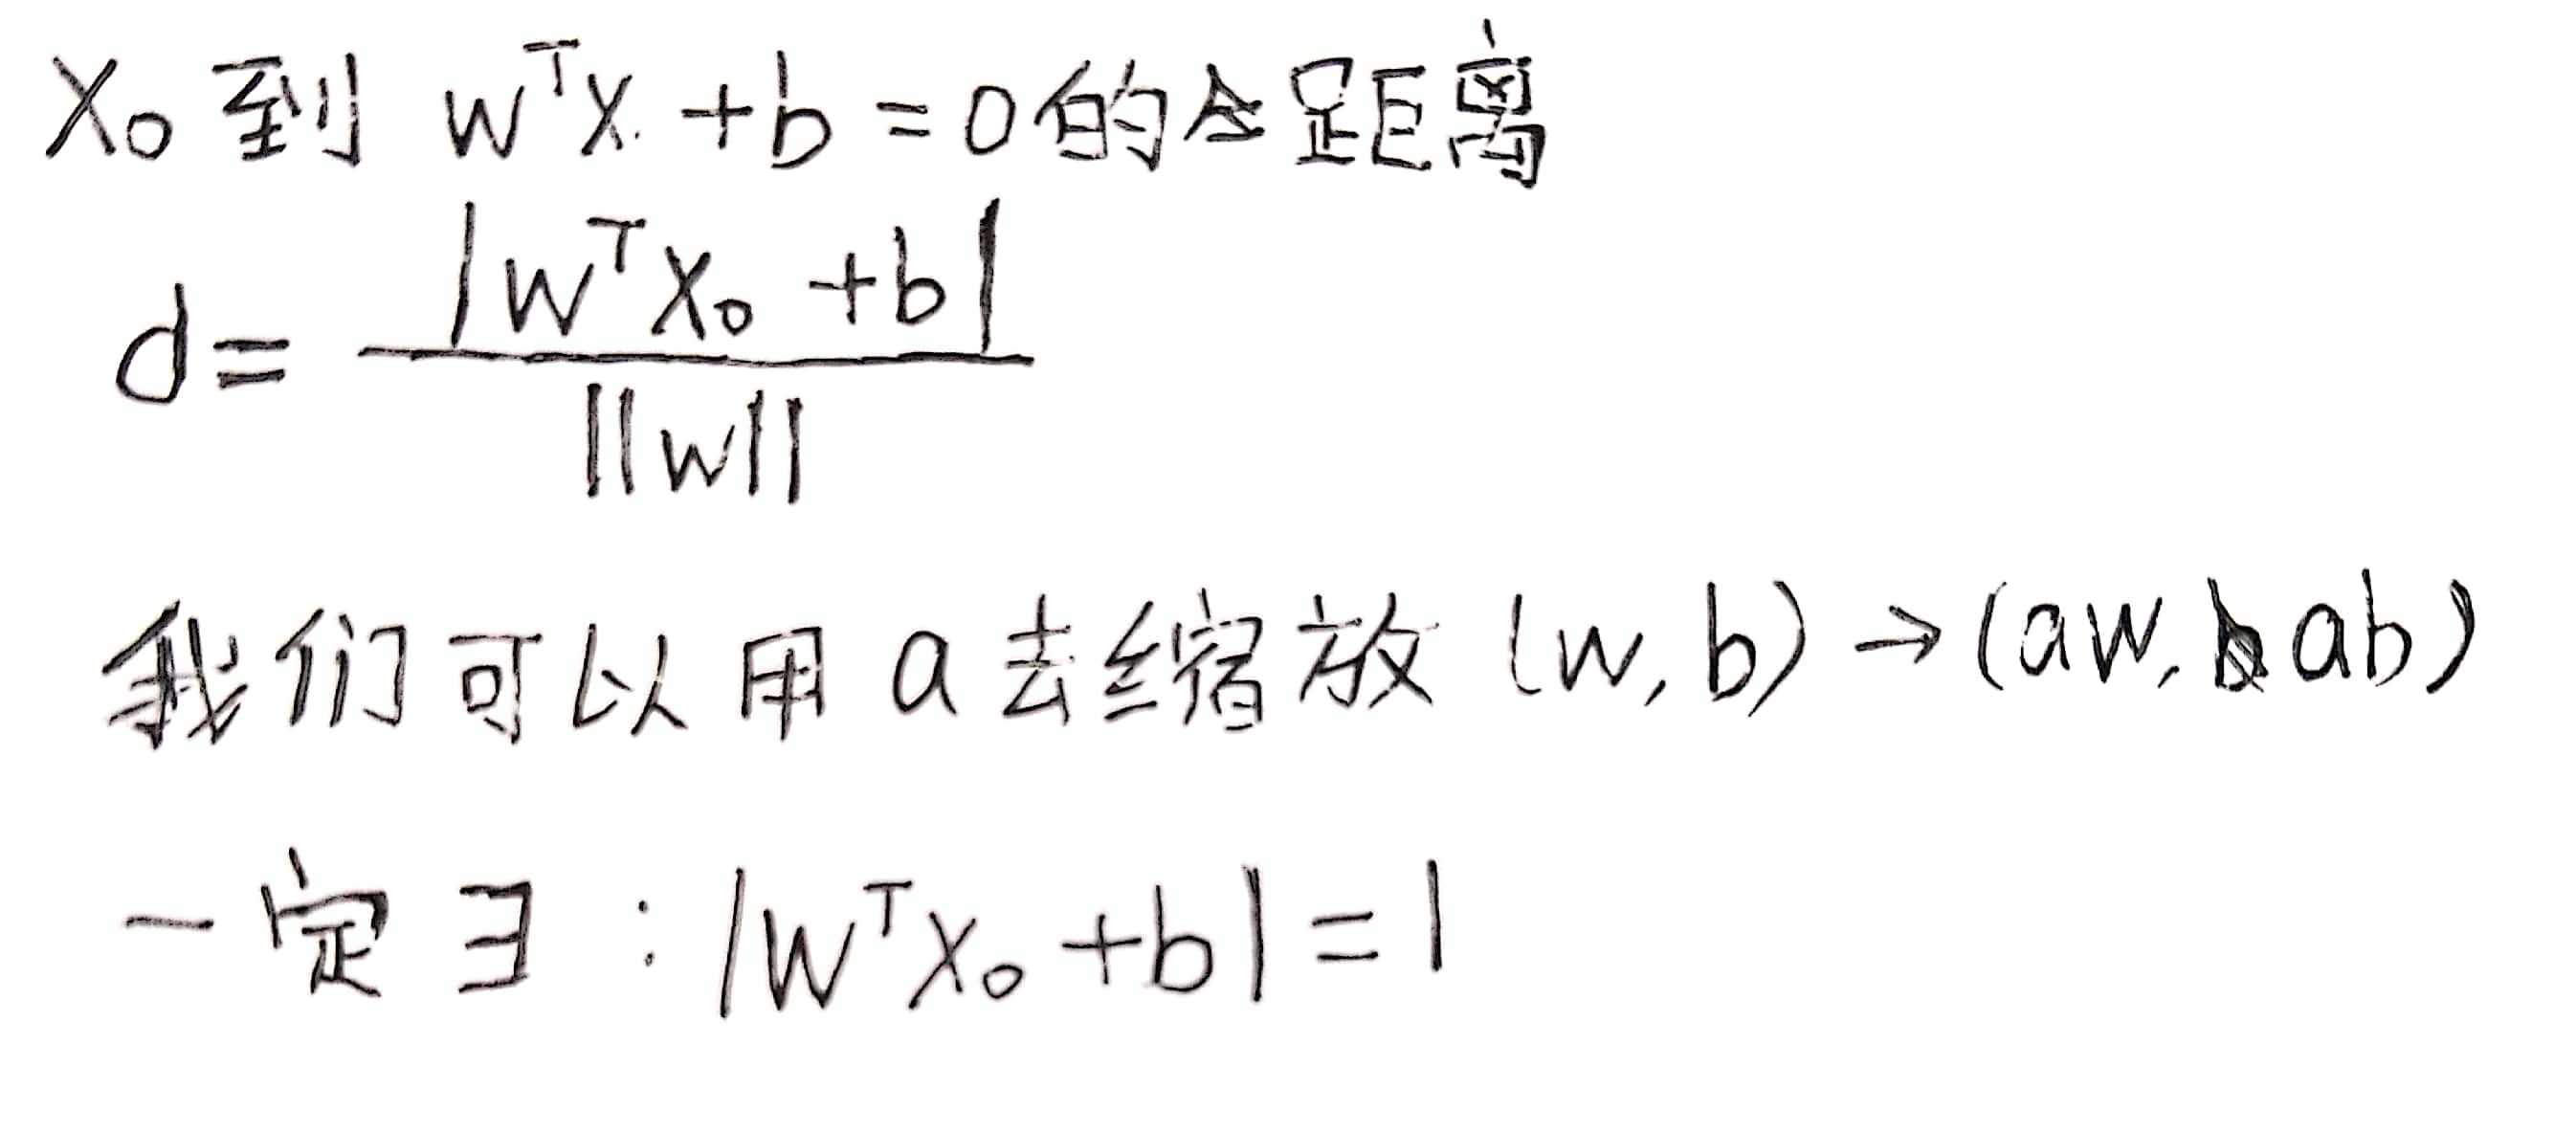 X₀ 到 wᵀx + b = 0 的 距离
d = |wᵀx₀ + b| / ||w||
我们可以用 a 去缩放 (w, b) → (aw, ab)
一定 ∃ : |wᵀx₀ + b| = 1